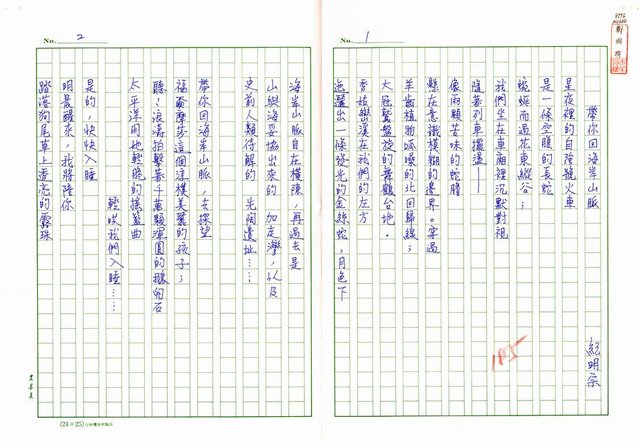 No. 1
帶你回海岸山脈
紀明宗
星夜裡的自強號火車
是一條空腹的長蛇
蜿蜒而過花東縱谷；
我們坐在車廂裡沉默對視
隨著列車擺盪——
像兩顆苦味的蛇膽
懸在意識模糊的邊界。穿過
羊齒植物喊嚷的北回歸線；
大冠鷲盤旋的舞鶴台地。
秀姑巒溪在我們的左方
迤邐出一條發光的金絲蛇，月色下
185
No. 2
海岸山脈自在橫陳，再過去是
山與海妥協出來的 加走灣，以及
史前人類待解的 先陶遺址……
帶你回海岸山脈，去探望
福爾摩莎這個淳樸美麗的孩子；
聽？浪濤拍擊著千萬顆渾圓的
太平洋用她輕晚的搖籃曲
輕哄我們入睡……
是的，快快入睡
明晨醒來，我將陪你
踏落狗尾草上透亮的露珠
(24×25)